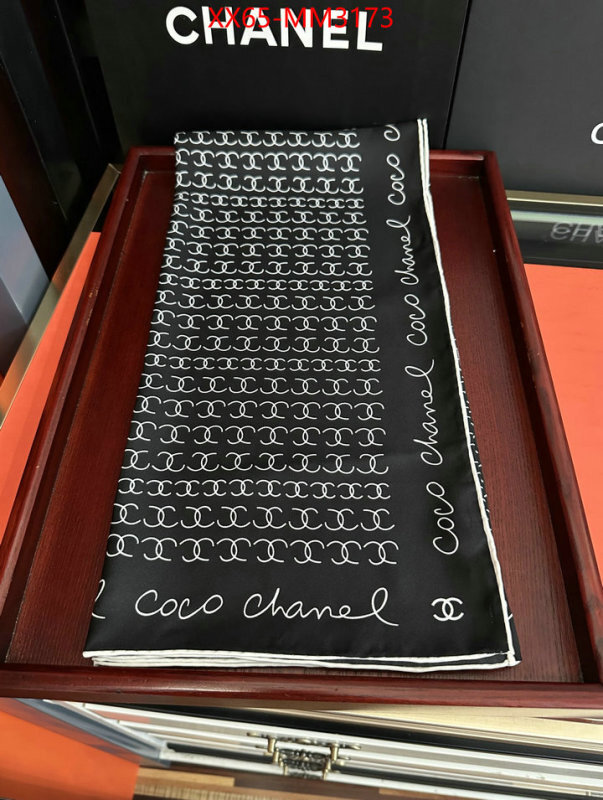 XX65-MM3173
CHANEL
coco chanel coco chanel coco
coco chanel